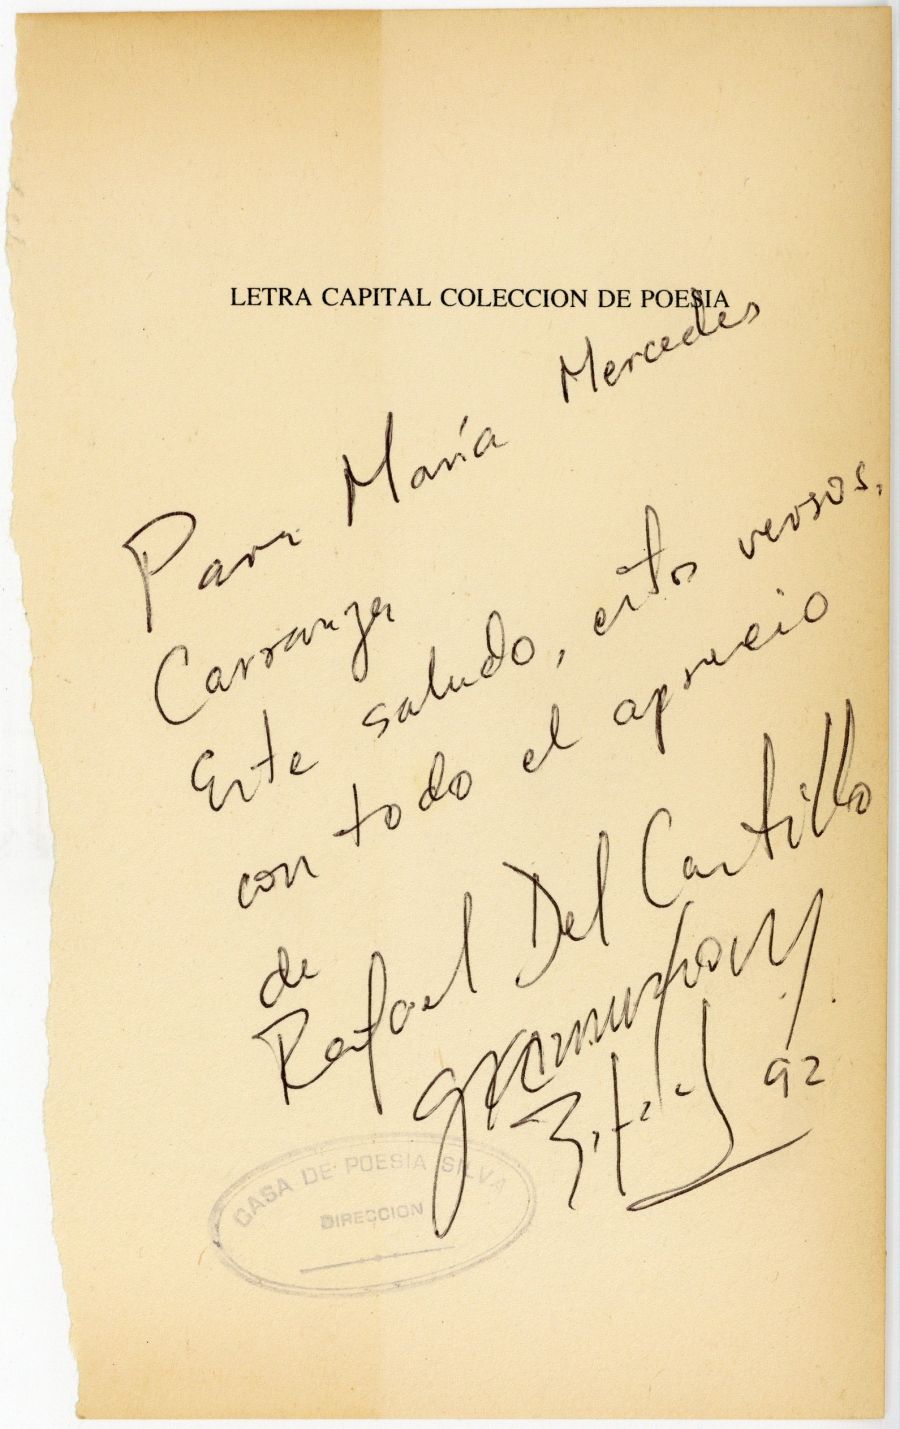 LETRA CAPITAL COLECCION DE POESIA
Para María Mercedes
Carranza
Este saludo, estos versos,
con todo el aprecio
de
Rafael Del Castillo
92
CASA DE POESIA SILVA
DIRECCION